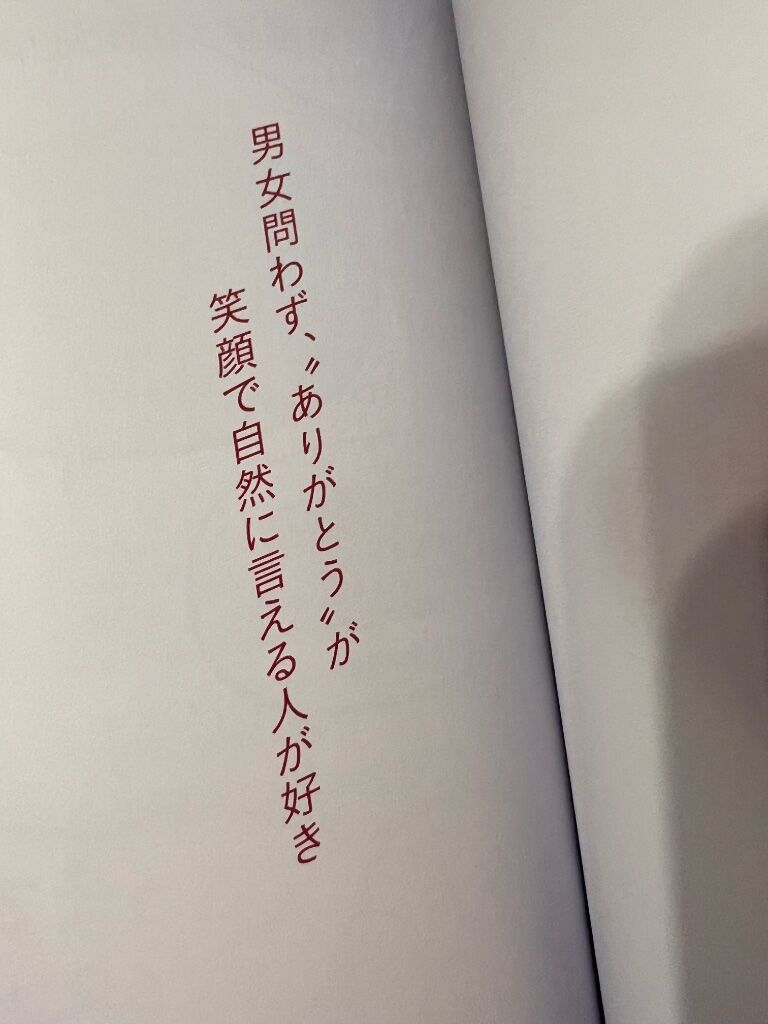 男女問わず、〝ありがとう〟が
笑顔で自然に言える人が好き